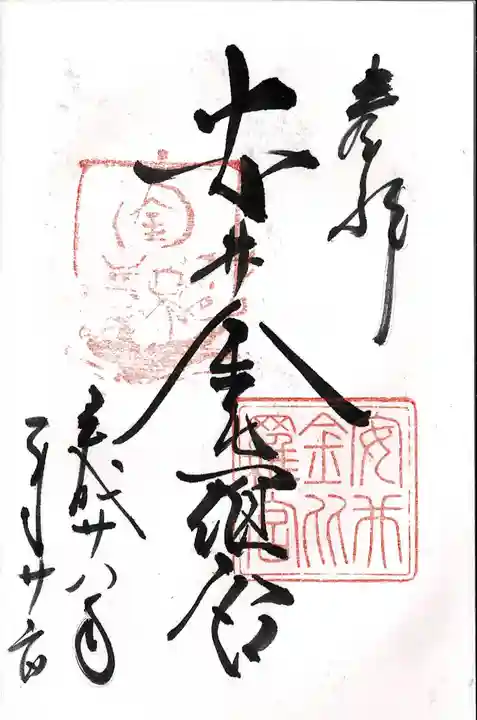 奉拝
安井金比羅宮
安井
金比
羅宮
平成廿八年
月廿日
金